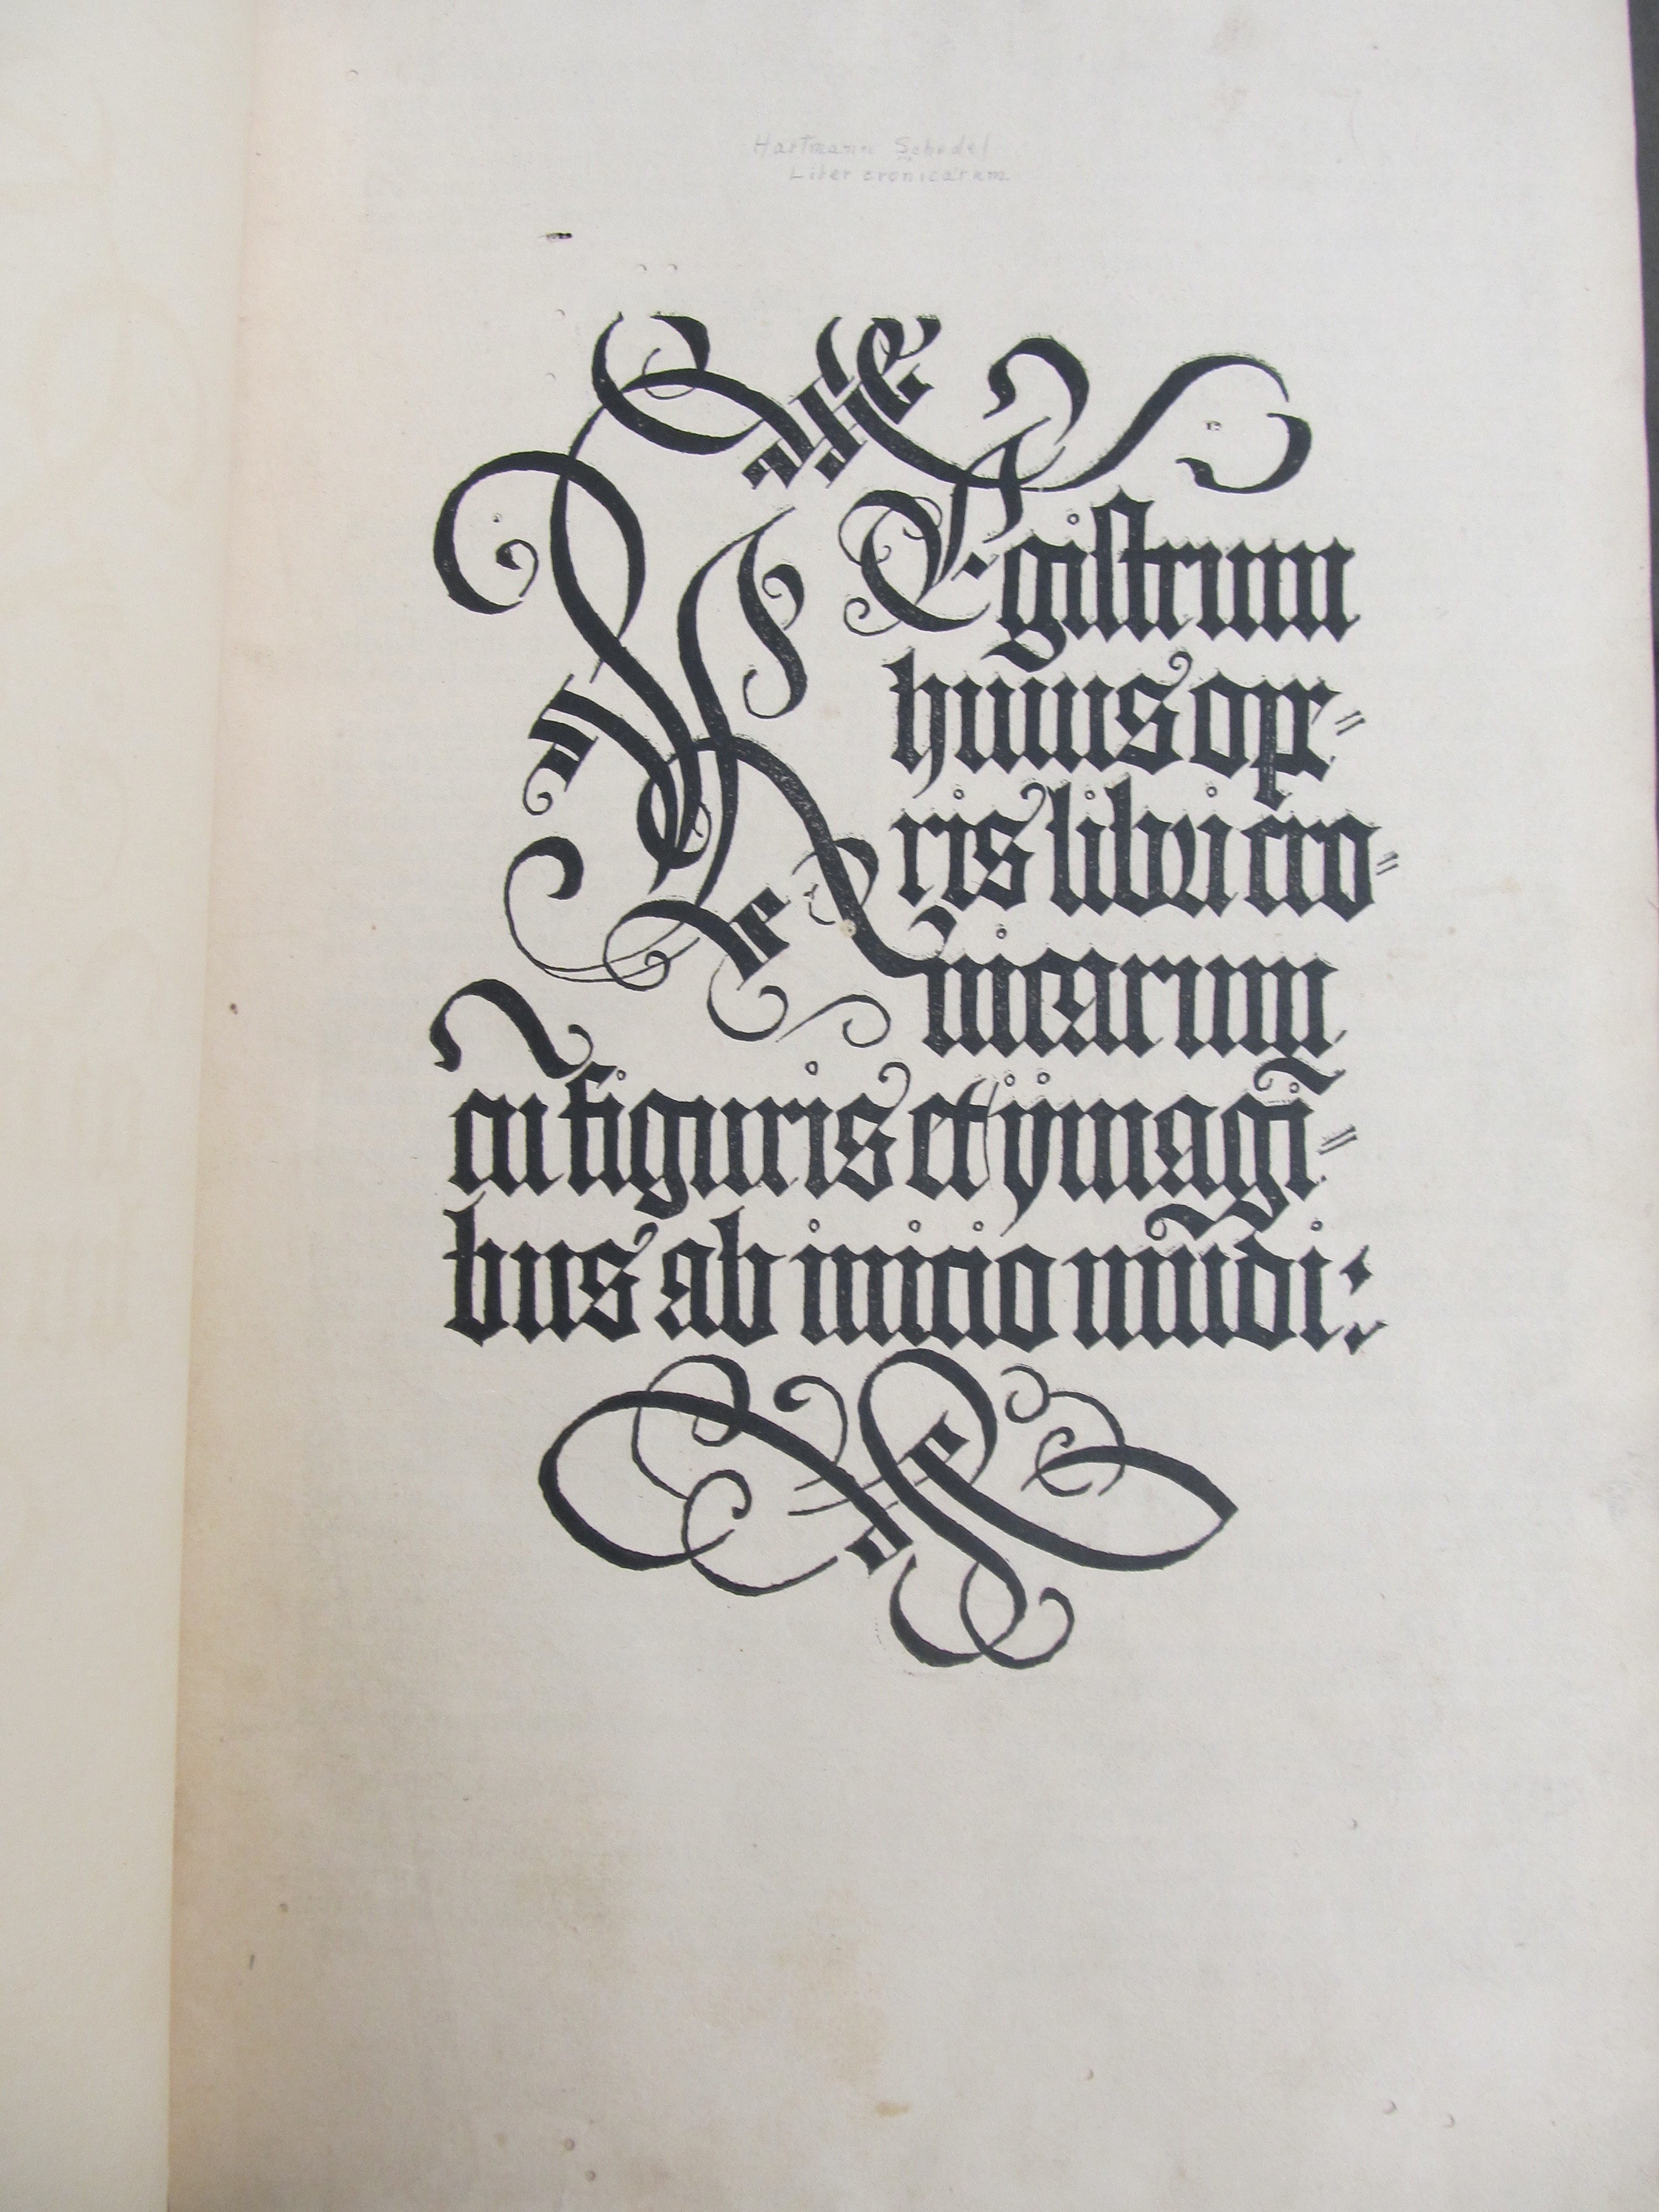 Hartmann Schedel
Liber cronicarum
REgistrum
huius ope=
ris libri cro=
nicarum
cū figuris et ÿmagi=
bus ab inicio mūdi: